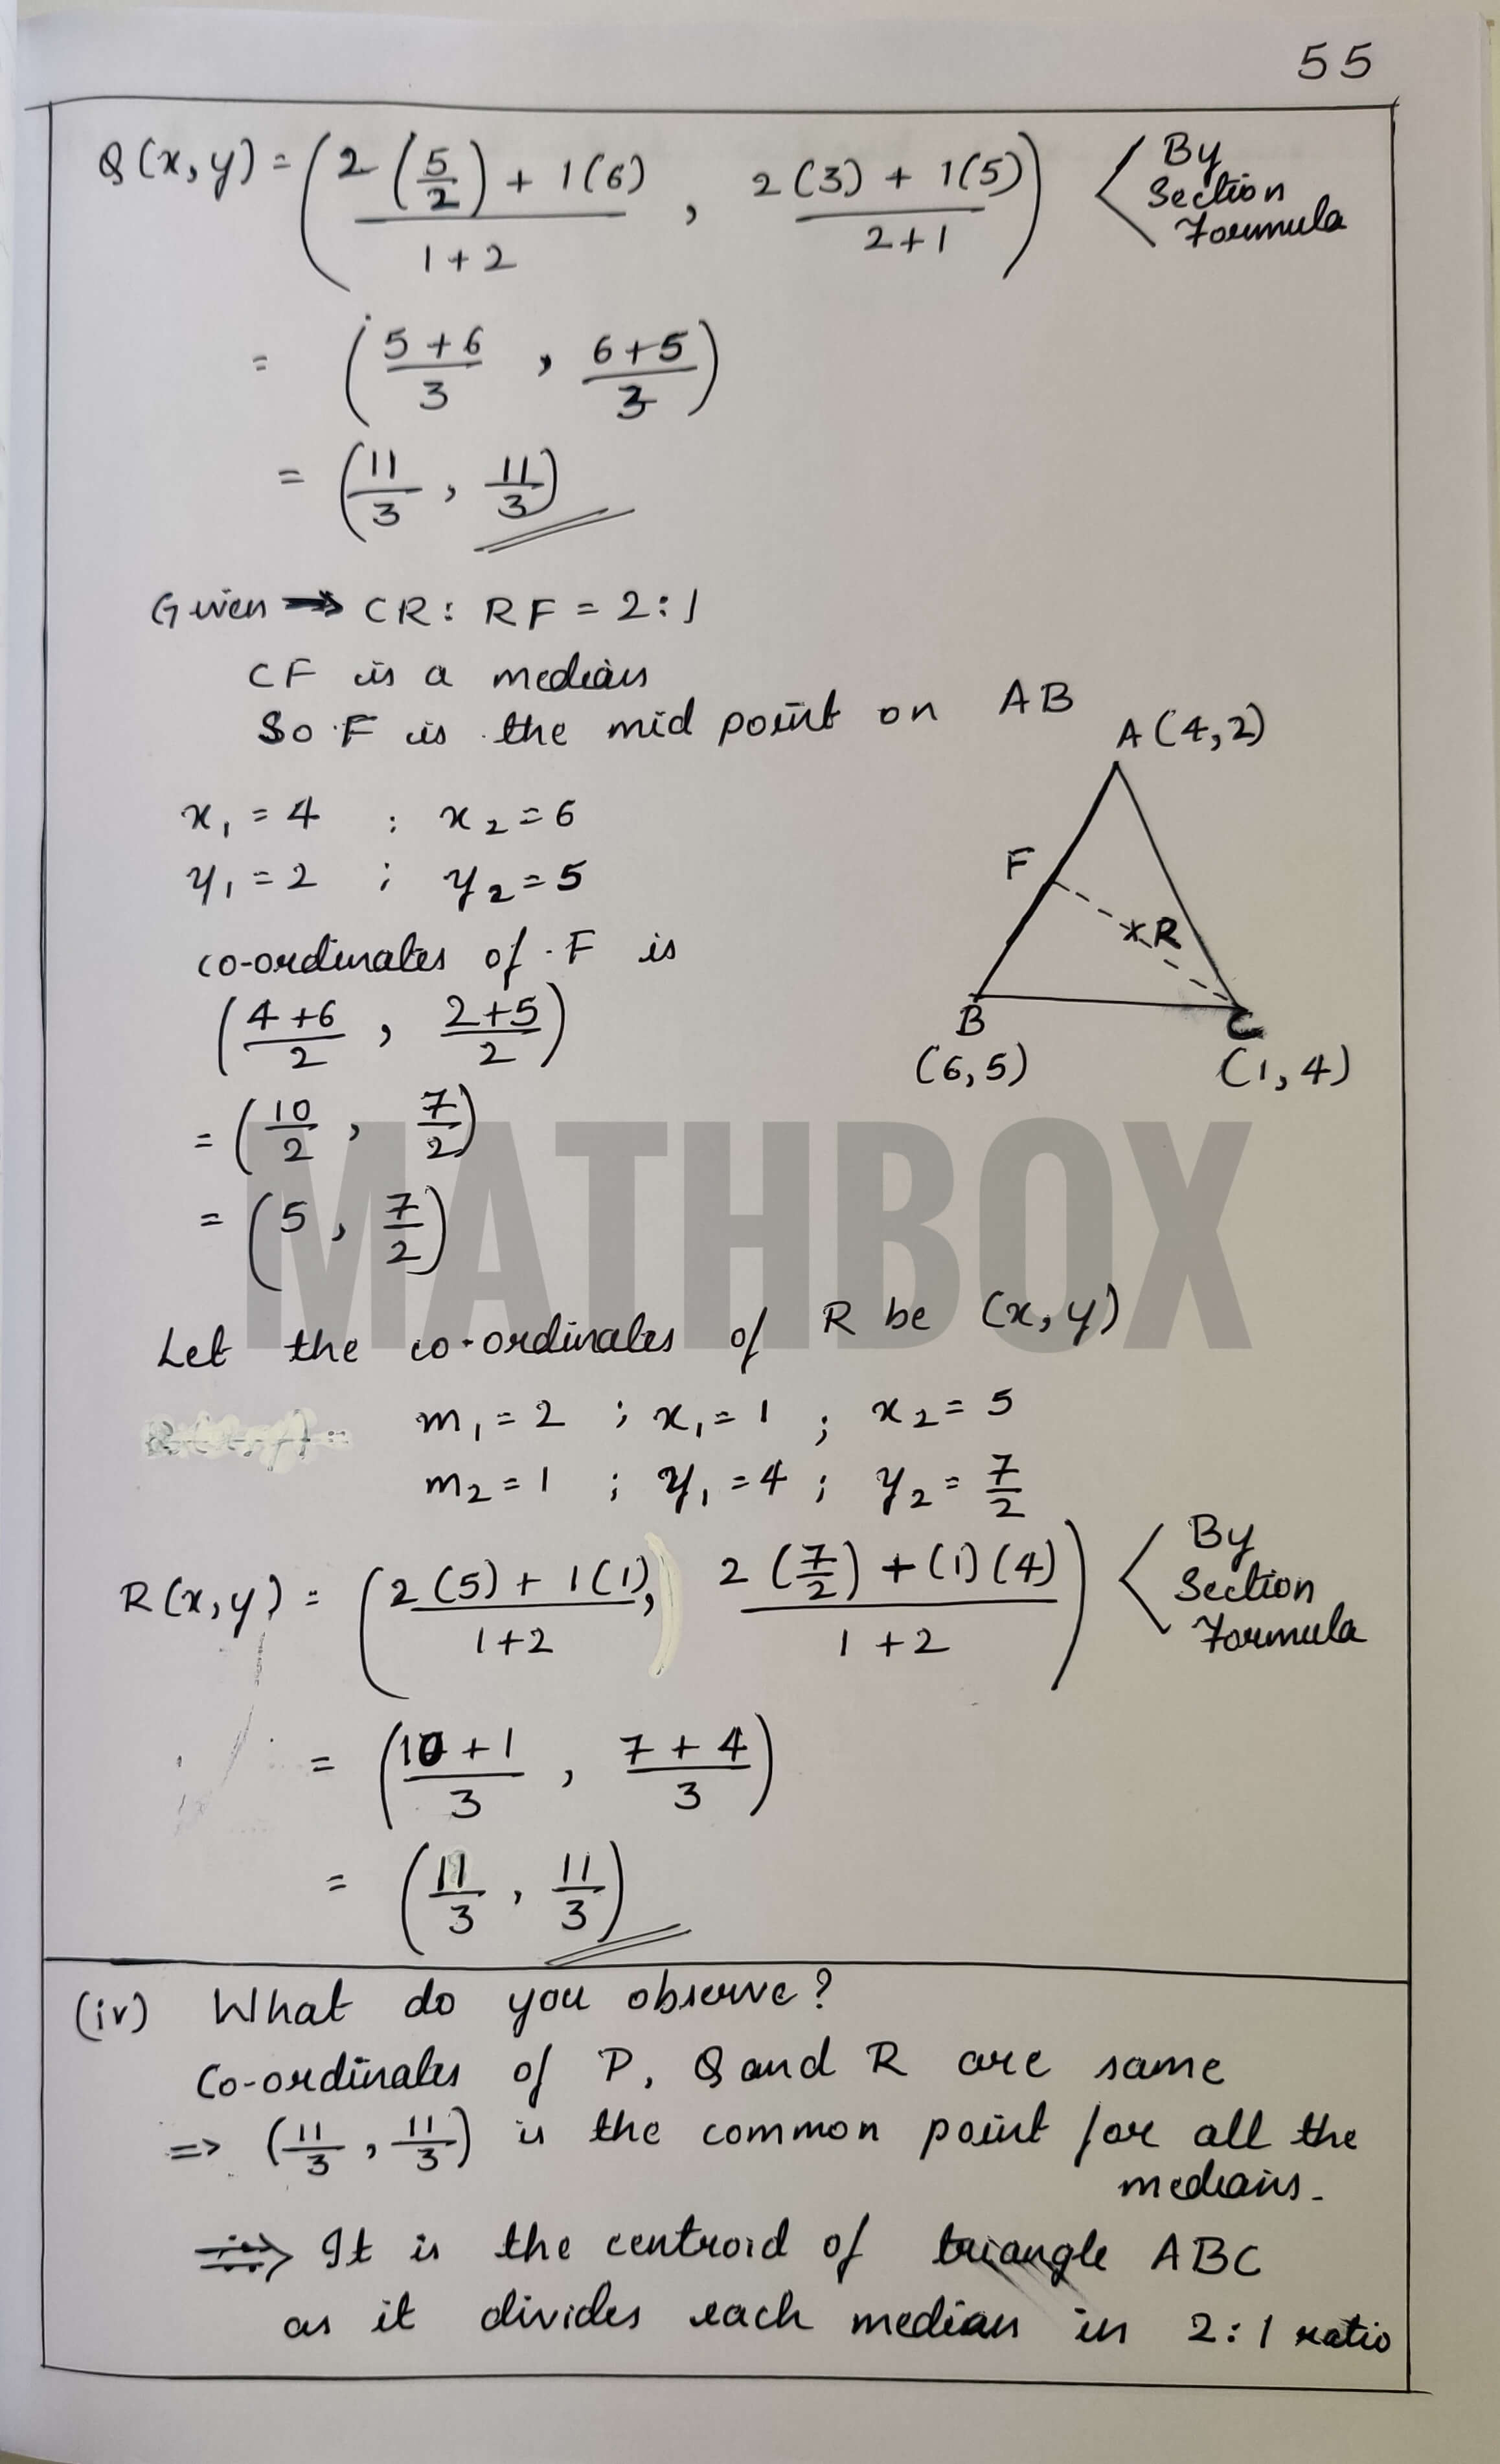 55
Q(x,y) = (2(5/2) + 1(6) / 1+2 , 2(3) + 1(5) / 2+1) < By Section Formula
= (5+6/3 , 6+5/3)
= (11/3 , 11/3)
Given → CR : RF = 2:1
CF is a median
So F is the mid point on AB
A(4,2)
x₁ = 4 ; x₂ = 6
y₁ = 2 ; y₂ = 5
F
R
co-ordinates of F is
B
C
(4+6/2 , 2+5/2)
(6,5)
(1,4)
= (10/2 , 7/2)
MATHBOX
= (5 , 7/2)
Let the co-ordinates of R be (x,y)
m₁ = 2 ; x₁ = 1 ; x₂ = 5
m₂ = 1 ; y₁ = 4 ; y₂ = 7/2
R(x,y) = (2(5) + 1(1) / 1+2 , 2(7/2) + (1)(4) / 1+2) < By Section Formula
= (10+1/3 , 7+4/3)
= (11/3 , 11/3)
(iv) What do you observe?
Co-ordinates of P, Q and R are same
=> (11/3 , 11/3) is the common point for all the
medians.
=> It is the centroid of triangle ABC
as it divides each median in 2:1 ratio